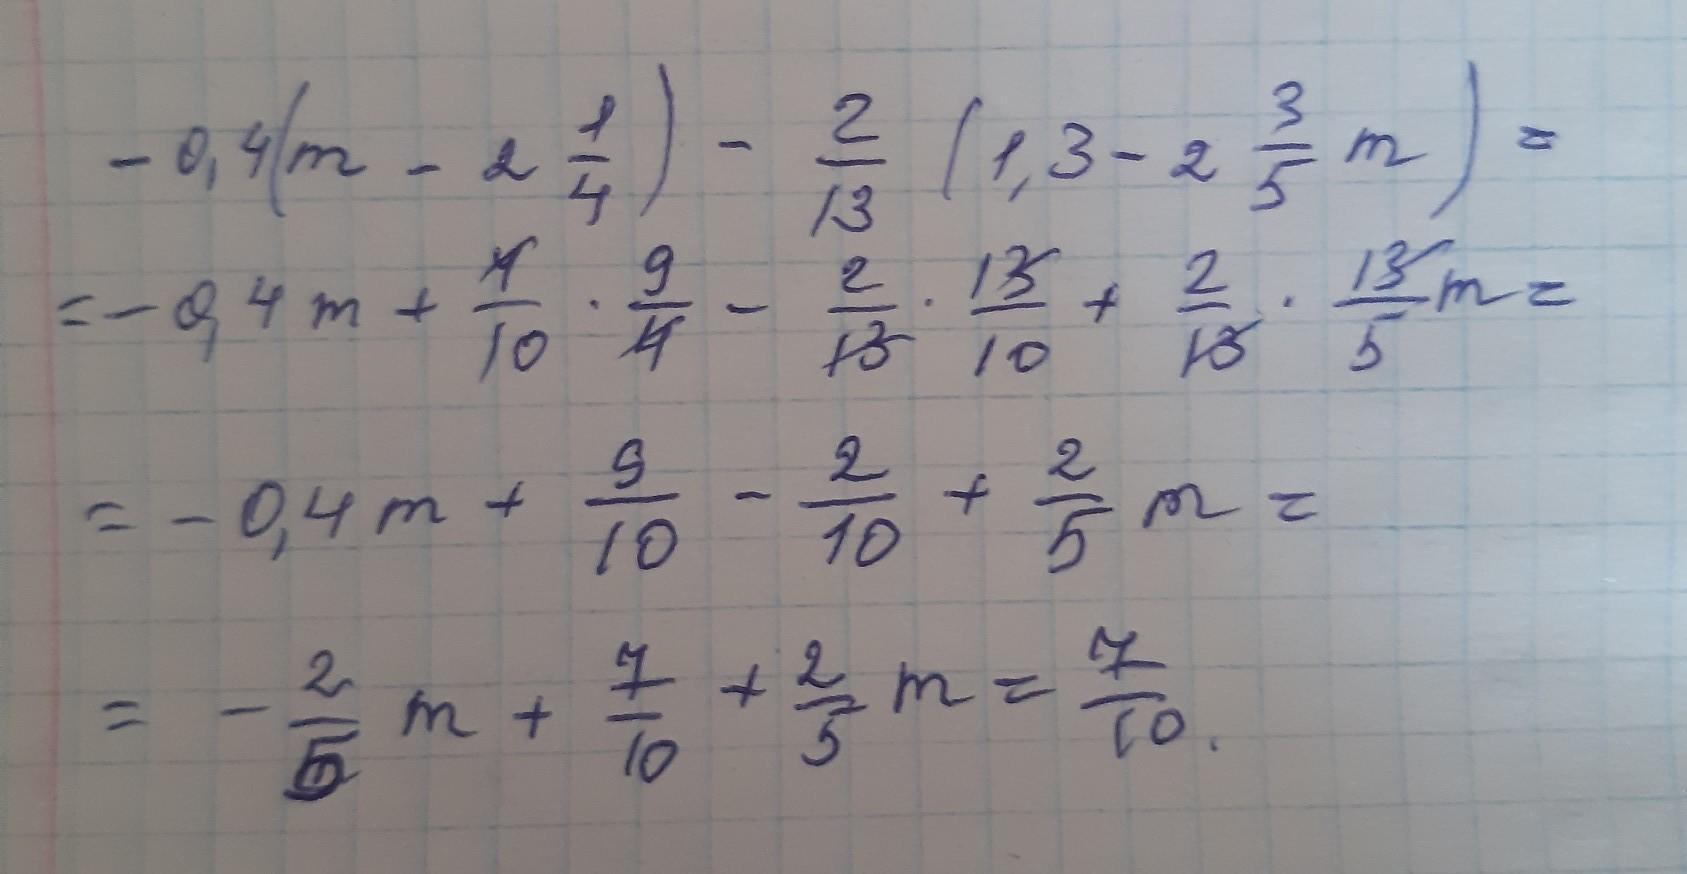 - 0,4(m - 2 1/4) - 2/13 (1,3 - 2 3/5 m) =
= - 0,4 m + 4/10 · 9/4 - 2/13 · 13/10 + 2/13 · 13/5 m =
= - 0,4 m + 9/10 - 2/10 + 2/5 m =
= - 2/5 m + 7/10 + 2/5 m = 7/10.